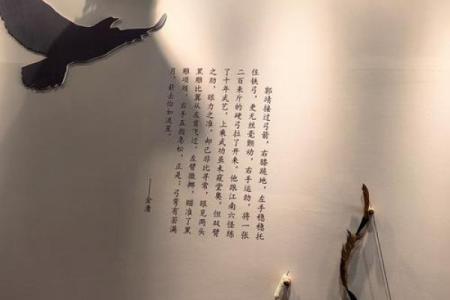 郭靖接过弓箭，右膝跪地，左手稳稳托
住铁弓，更无丝毫颤动，右手运劲，将一张
二百来斤的硬弓拉了开来。他跟江南六怪练
了十年武艺，上乘武功虽未窥堂奥，但双臂
之劲，眼力之准，却已非比寻常，眼见两头
黑雕比翼从左首飞过，左臂微挪，瞄准了黑
雕项颈，右手五指急松，正是：弓弯有若满
月，箭去恰如流星。
——金庸